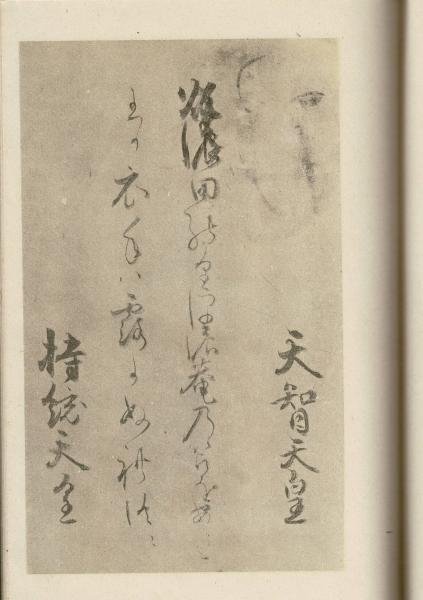 天智天皇
秋の田のかりほの庵乃とまをあらみ
わか衣手ハ露にぬれつゝ
持統天皇